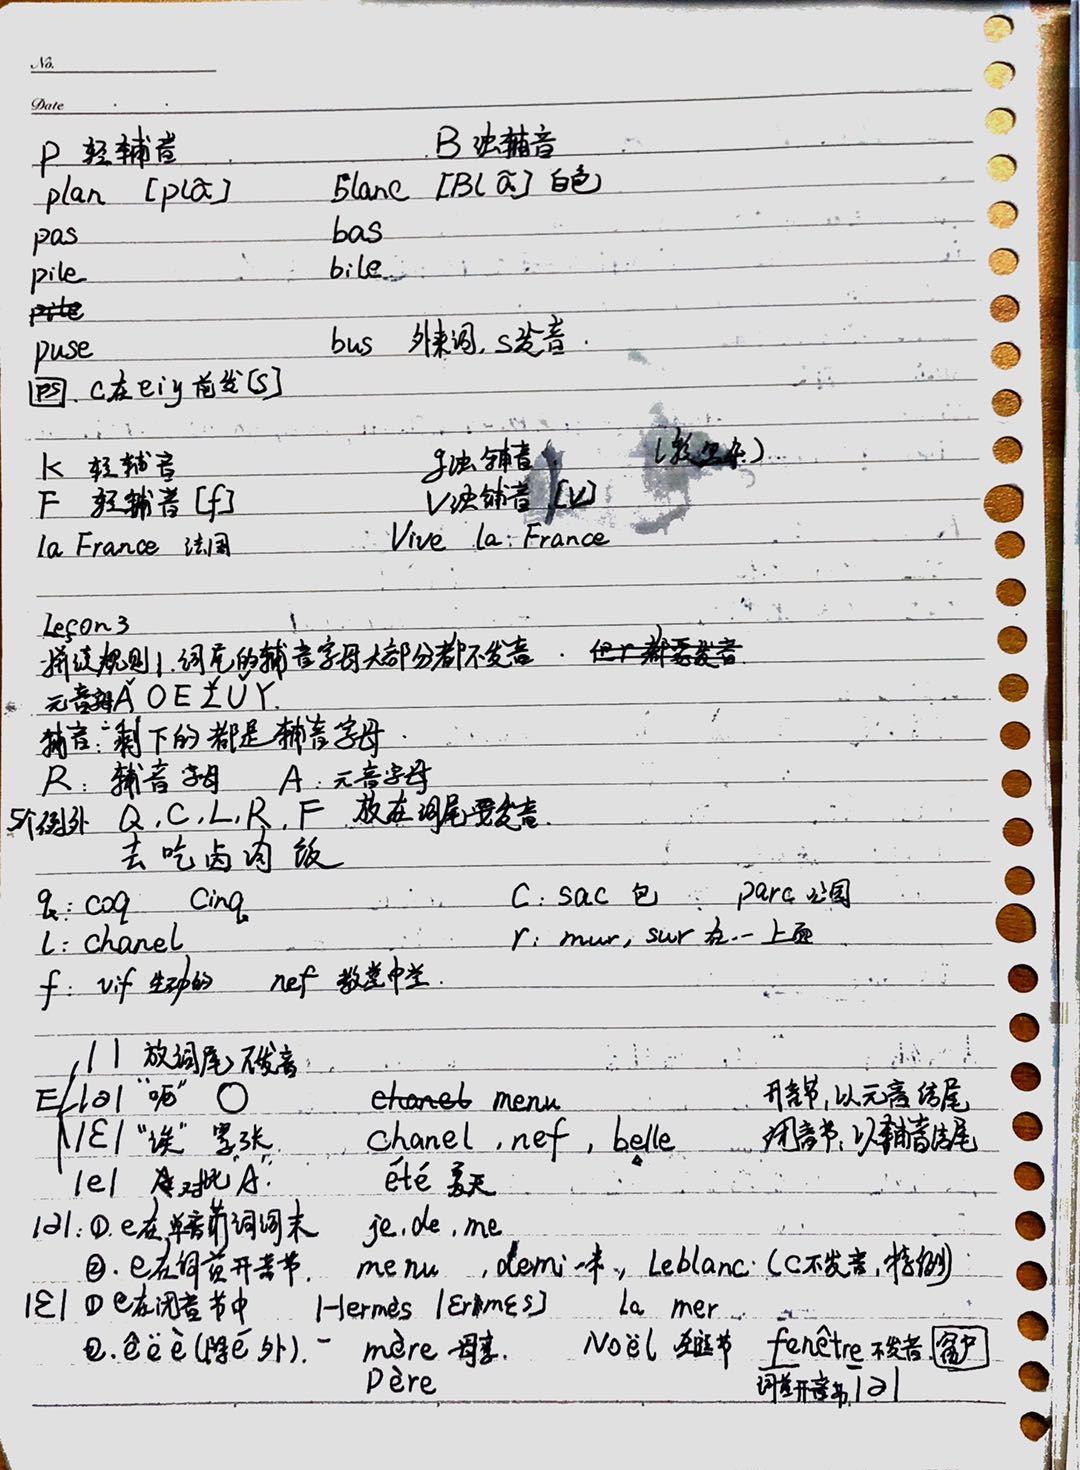 No.
Date
P 轻辅音 B 浊辅音
plan [plã] blanc [BLã] 白色
pas bas
pile bile
pile
puse bus 外来词, s发音.
PS. C在eiy前发[s]
K 轻辅音 g浊辅音
F 轻辅音[f] V浊辅音[V]
la France 法国 Vive la France
Leçon 3
拼读规则1.词尾的辅音字母大部分都不发音. 但r都要发音.
元音字母A O E I U Y.
辅音: 剩下的都是辅音字母.
R: 辅音字母 A: 元音字母
5个例外 Q, C, L, R, F 放在词尾要发音.
去吃卤肉饭
q: coq cinq C: sac 包 parc 公园
L: chanel r: mur, sur 在..上面
f: vif 生动的 nef 教堂中堂.
| | 放词尾, 不发音
E |ə| "呃" ○ chanel menu 开音节, 以元音结尾
|ɛ| "诶" 嘴张 chanel, nef, belle 闭音节, 以辅音结尾
|e| "A". été 夏天
|ə|: ①. e在单音节词词末 je, de, me
②. e在词首开音节. menu, demi 一半, Leblanc. (C不发音, 特例)
|ɛ| ① e在闭音节中 Hermès |ɛrmɛs] la mer
②. ê ë è (除é外). mère 母亲. Noël 圣诞节 fenêtre 不发音 窗户
père 词首开音节 |ə|